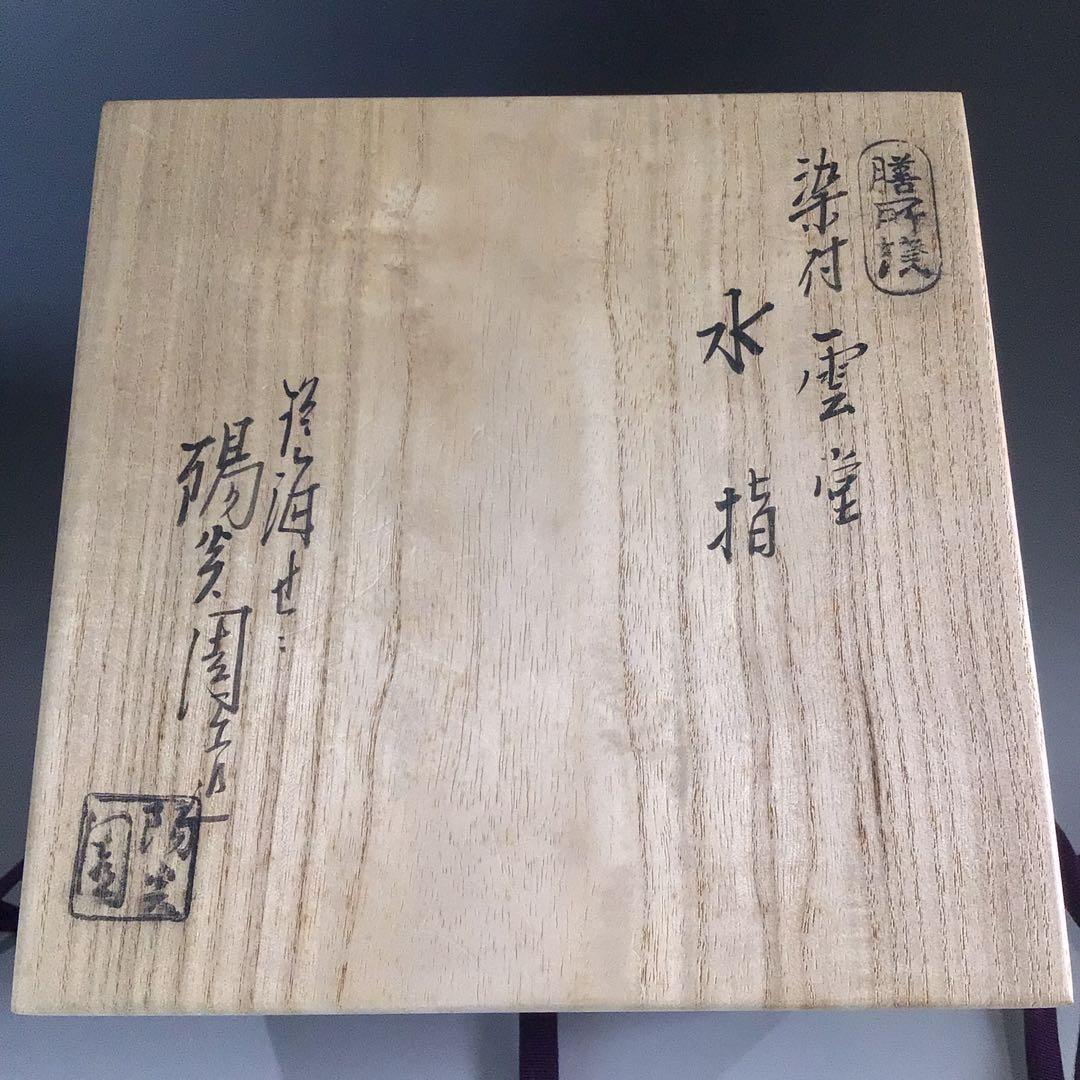 膳所焼
染付雲堂
水指
淡海せゝ
陽炎園造
陽炎園